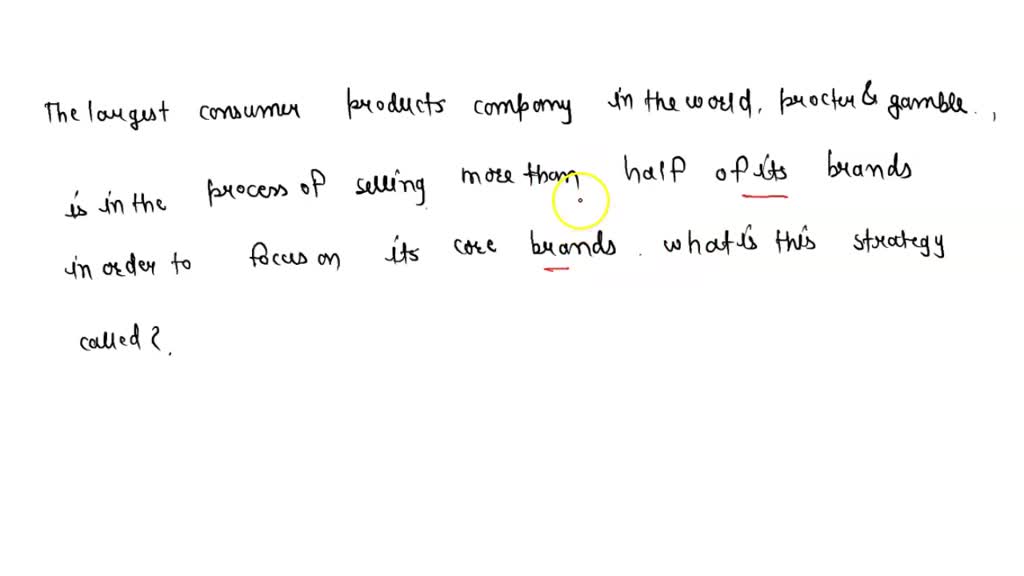 The largest consumer products company in the world, procter & gamble.,
is in the process of selling more than half of its brands
in order to focus on its core brands. what is this strategy
called?.